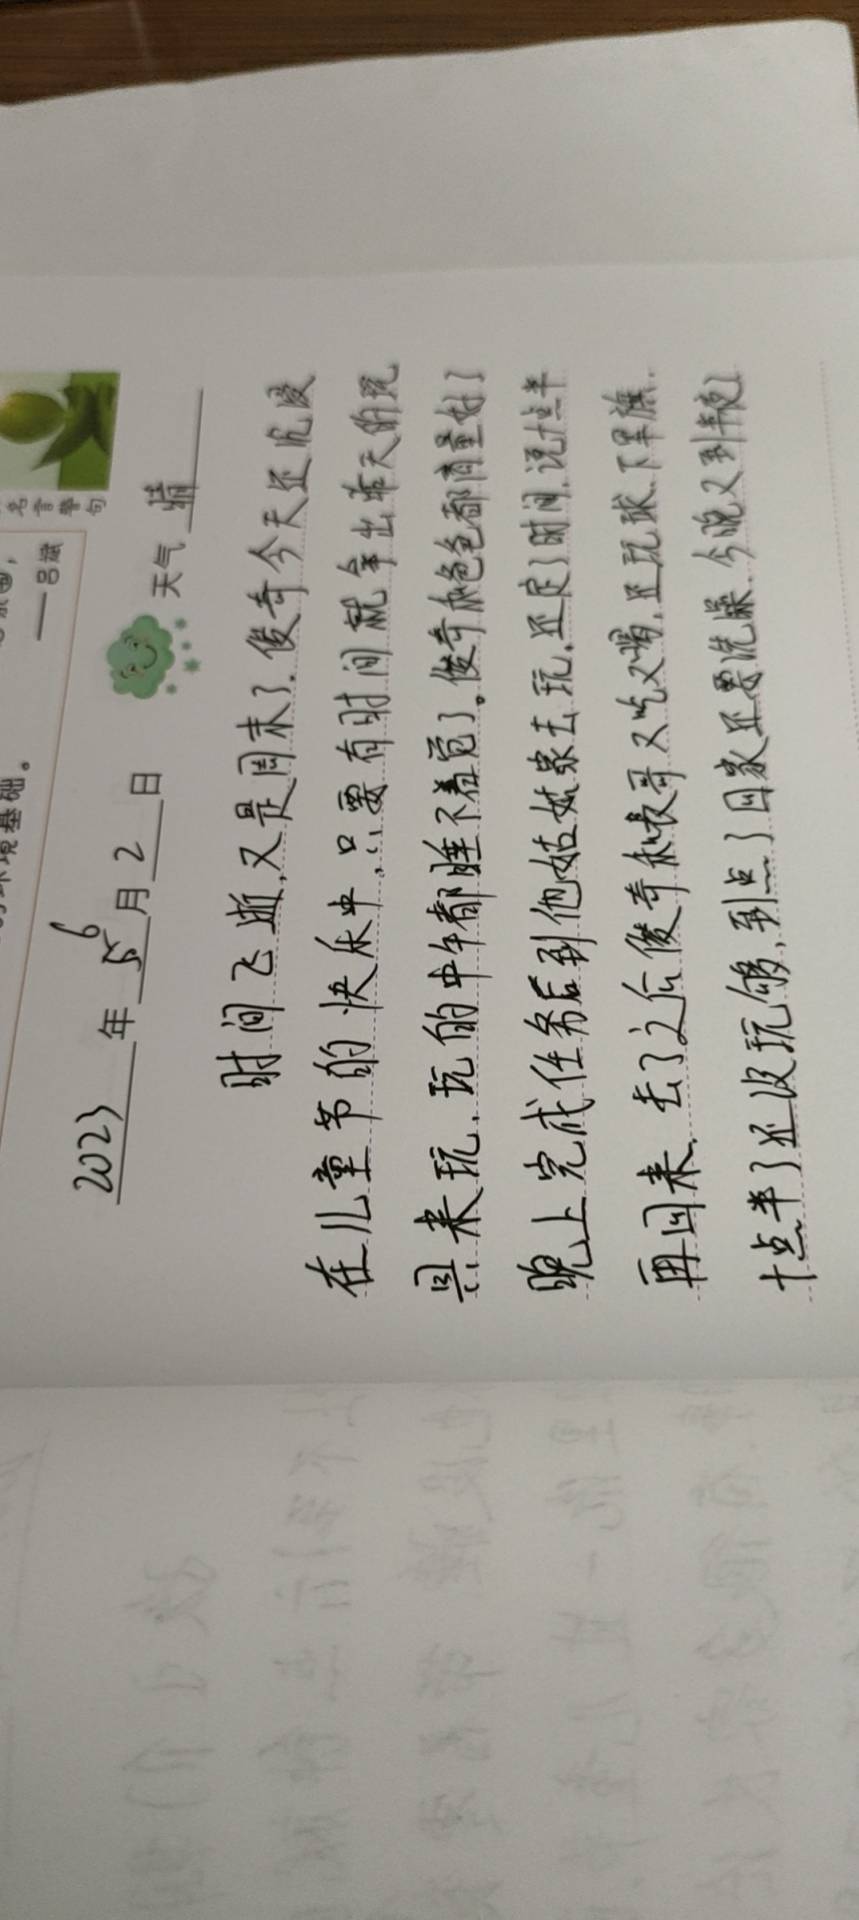 的环境基础。
——吕斌
名言警句
2023年6月2日 天气 晴
时间飞逝,又是周末了.俊奇今天还沉浸
在儿童节的快乐中,只要有时间就拿出昨天的玩
具来玩,玩的中午都睡不着觉了。俊奇和爸爸都商量好了
晚上完成任务后到他姑姑家去玩,还定了时间,说十点半
再回来.去了之后俊奇和表哥又吃又喝,还玩球.下军旗.
十点半了还没玩够,到点了回家还要洗澡.今晚又到半夜了